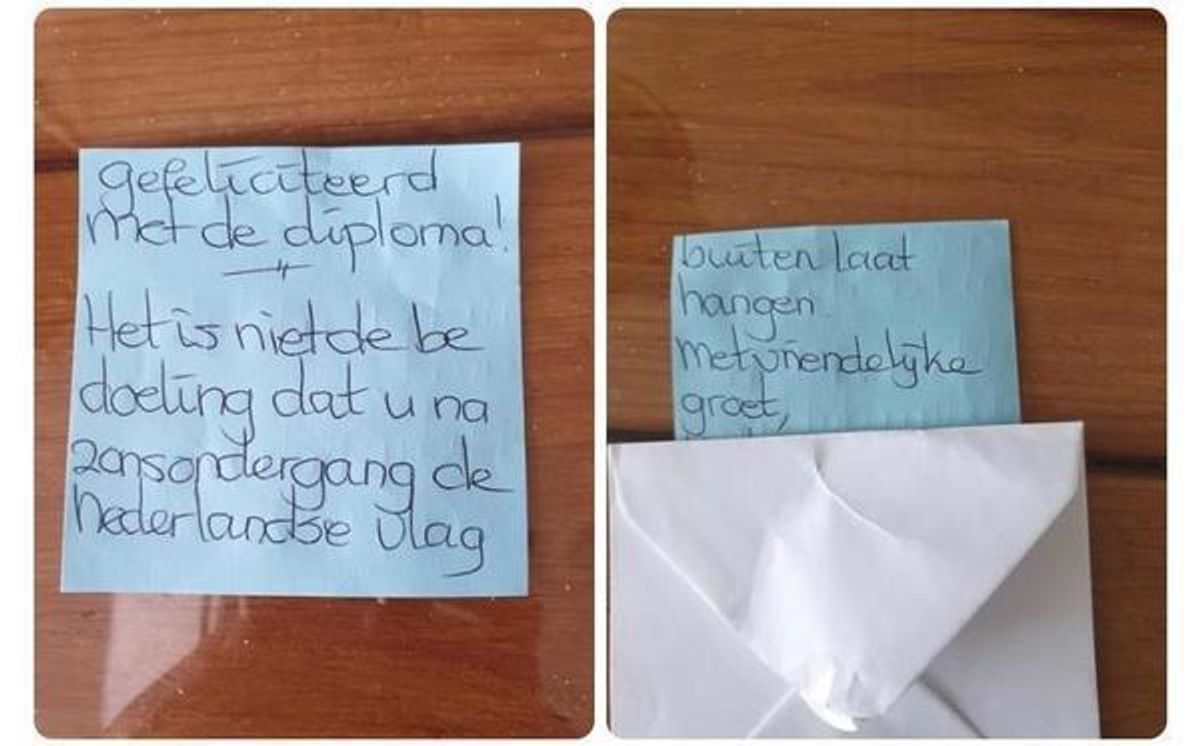 gefeliciteerd
met de diploma!
Het is niet de be
doeling dat u na
zonsondergang de
Nederlandse vlag
buiten laat
hangen
met vriendelijke
groet,